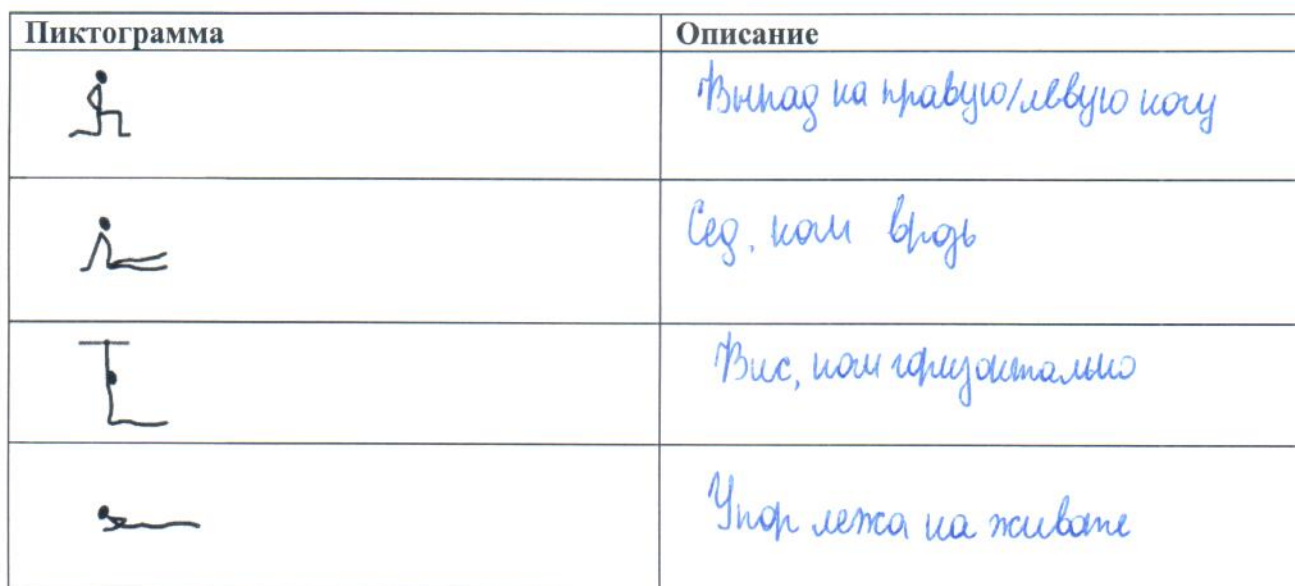 Пиктограмма
Описание
Выпад на правую/левую ногу
Сед, ноги врозь
Вис, ноги горизонтально
Упор лежа на животе